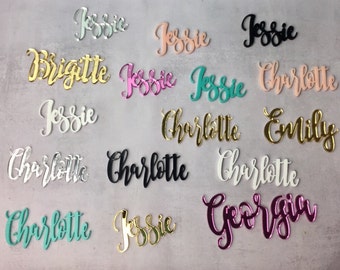 Jessie Jessie Jessie
Brigitte Jessie Jessie Charlotte
Jessie Charlotte Emily
Charlotte Charlotte Charlotte
Charlotte Jessie Georgia